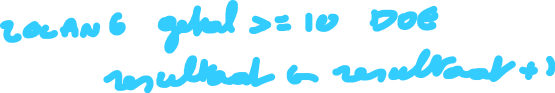 ZOLANG getal >= 10 DOE
resultaat ← resultaat + 1